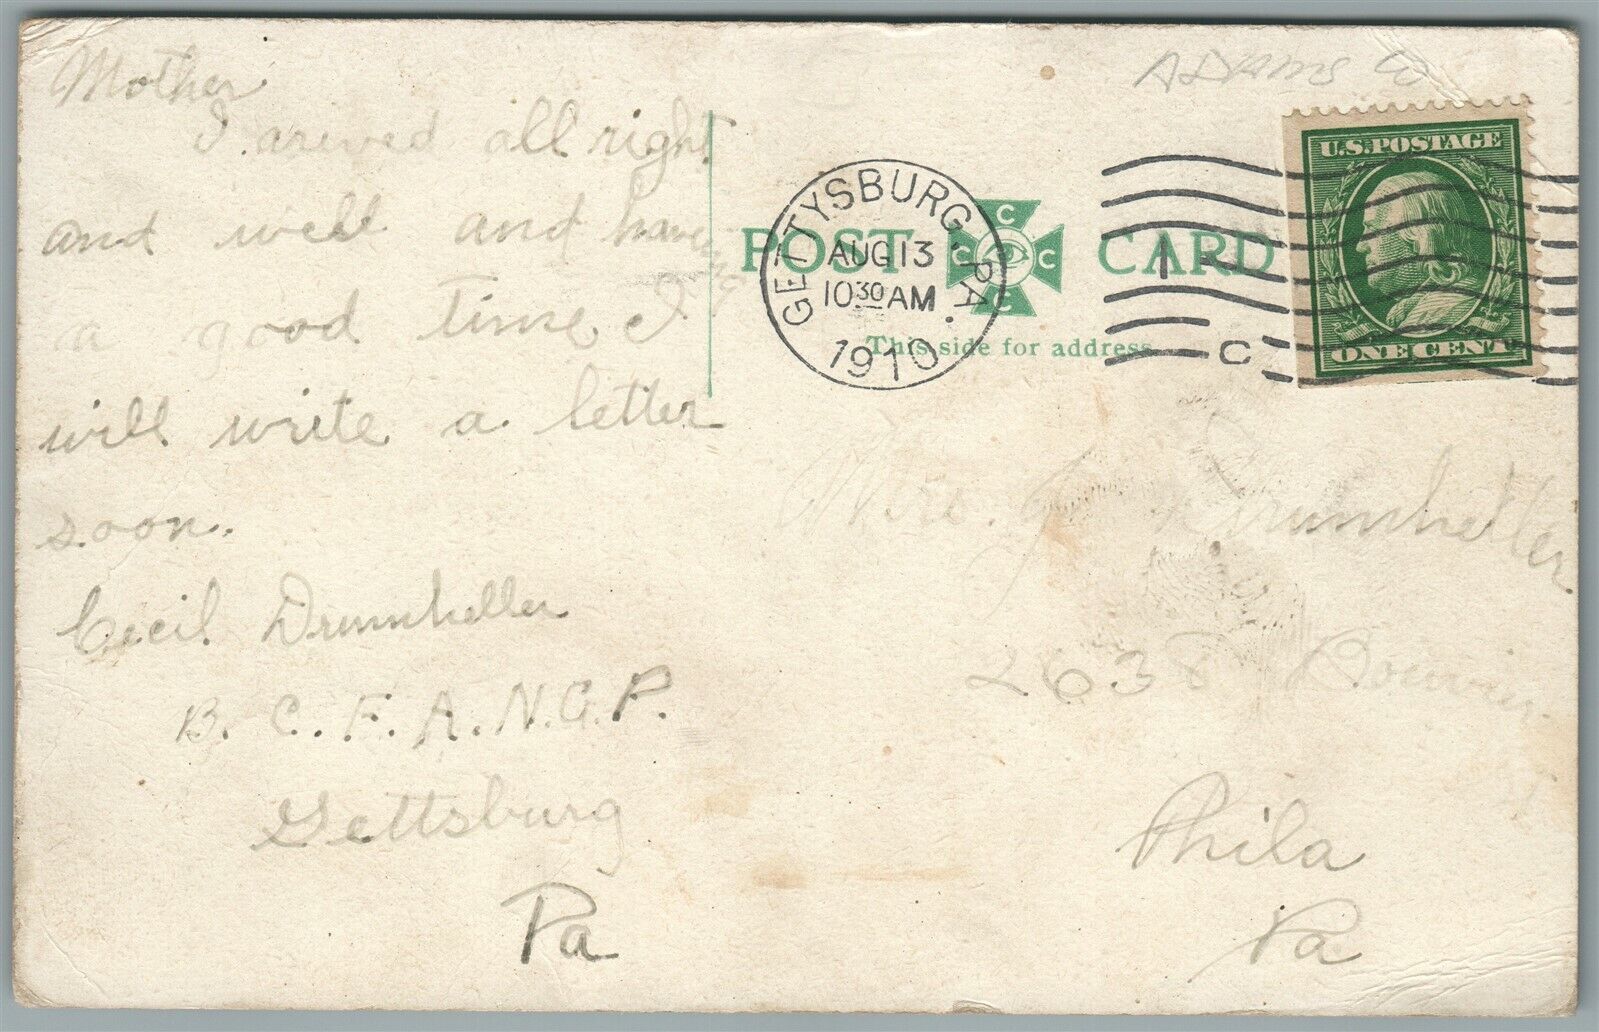 Mother
I arived all right
and well and having
a good time I
will write a letter
soon.
Cecil Drumheller
B. C. F. A. N. G. P.
Gettsburg
Pa
ADAMS CO
U.S. POSTAGE
ONE CENT
GETTYSBURG, PA.
AUG 13
10 30 AM
1910
1
C
POST CARD
C C C C
This side for address
Mrs. Drumheller
2638
Phila
Pa